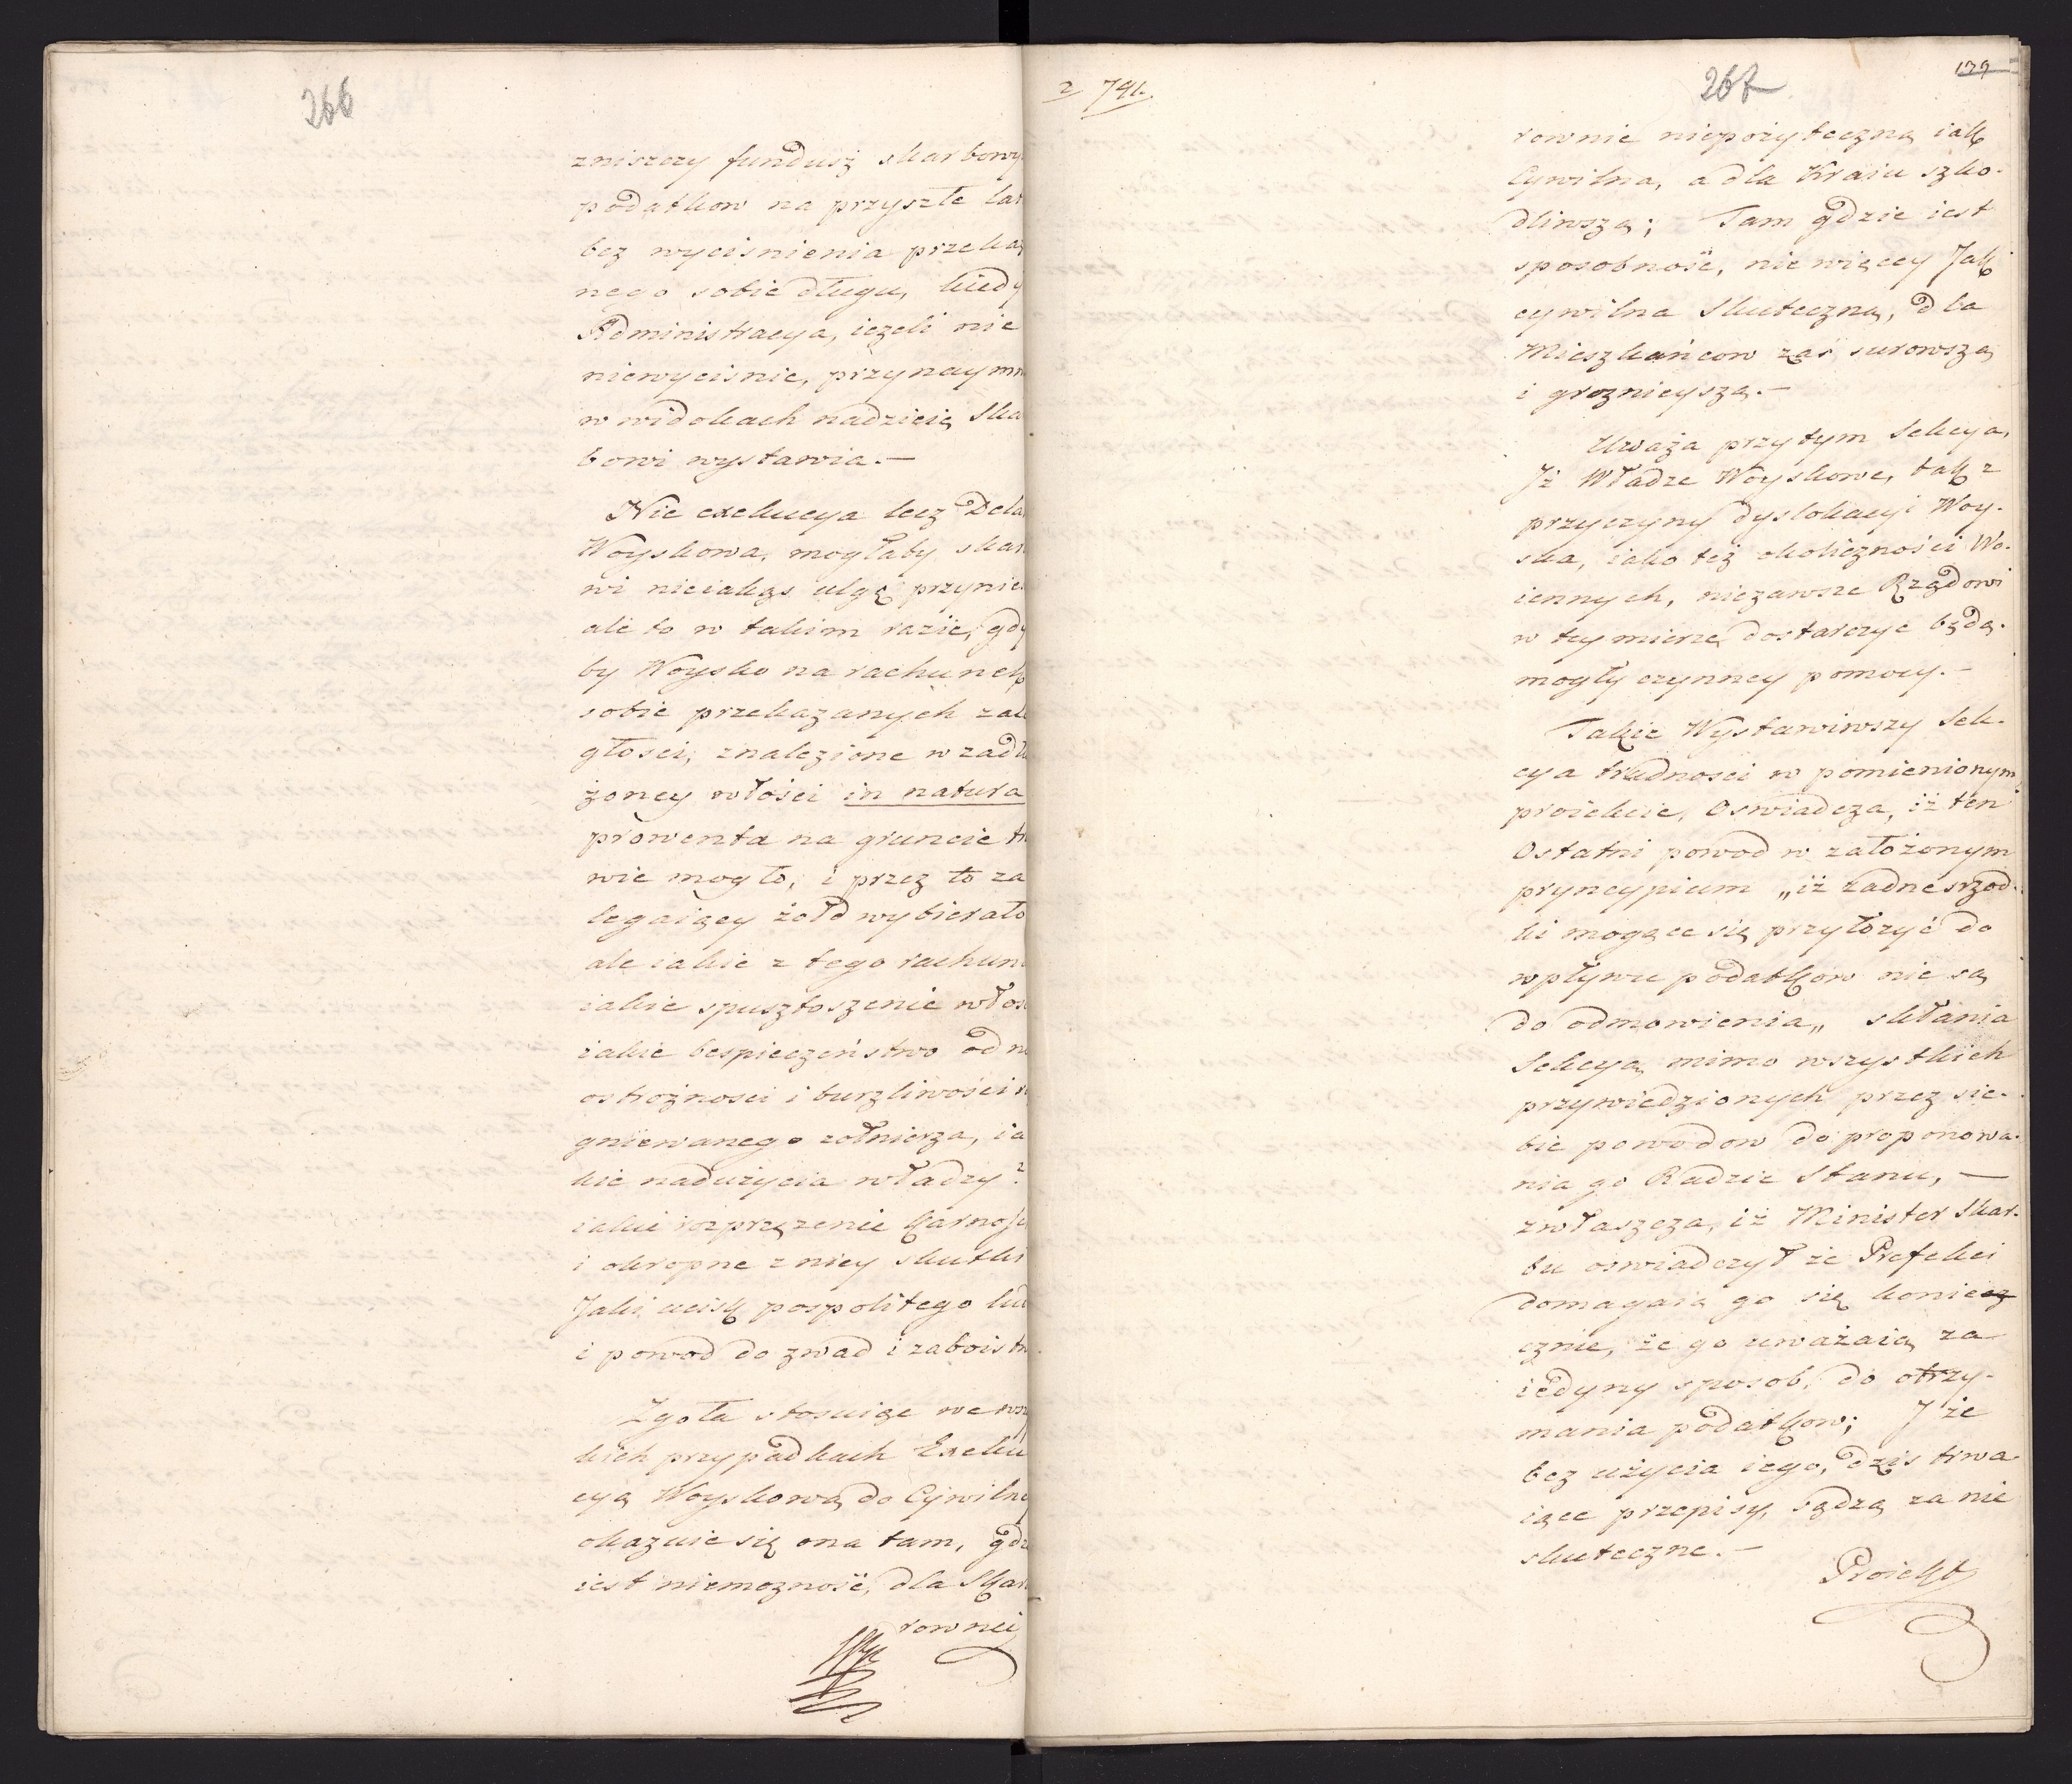 266
zniszczy fundusz skarbowy
podatkow na przyszłe lat
bez wycisnienia przekaz
nego sobie długu, kiedy
Administracya, ieżeli nie
niewyciśnie, przynaymn
w widokach nadzieię Ska
bowi wystawia.—
Nie exekucya lecz Dela
Woyskowa, mogłaby skar
wi nieiakąs ulgę przynie
ale to w takim razie, gdy
by Woysko na rachunek
sobie przekazanych zale
głosci, znalezione w zadłu
żoney włości in natura
prowenta na gruncie tr
wic mogło, i przez to za
legaiący żołd wybierało
ale iakie z tego rachun
iakie spusztoszenie włos
iakie bespieczeństwo od n
ostrożnosci i burzliwości r
gniewanego zołnierza, ia
kie nadużycia władzy?
iakie rozprzęzenie karnośc
i okropne z niey skutki
Jaki ucisk pospolitego lud
i powod do zwad i zaboistw
Zgoła stosuiąc we wsz
kich przypadkach Exeku
cyą Woyskową do Cywilne
okazuie się ona tam, gdz
iest niemozność, dla Skar
rownei
2 791.
267
139
rownie niepożyteczną iak
Cywilna, a dla Kraiu szko-
dliwszą; Tam gdzie iest
sposobność, nie więcey Jak
cywilna Skuteczną, dla
Mieszkańcow zaś surowszą
i grozniejszą.—
Uważa przytym Sekcya,
Jż Władze Woyskowe, tak z
przyczyny dyslokacyi Woy-
ska, iako też okoliczności Wo-
iennych, niezawsze Rządowi
w tey mierze dostarczyc będą
mogły czynney pomocy.—
Takie Wystawiwszy Sek-
cya trudnosci w pomienionym
proiekcie, Oswiadcza, iż ten
Ostatni powod w załóżonym
pryncypium „iż żadne srzod-
ki mogące się przyłożyć do
wpływu podatkow nie są
do odmowienia„ skłania
Sekcyą mimo wszystkich
przywiedzionych przez sie-
bie powodow do proponowa-
nia go Radzie Stanu, —
zwłaszcza, iż Minister Skar-
bu oswiadczył że Prefekci
domagaią go się koniecz
cznie, że go uważaią za
iedyny sposob, do otrzy-
mania podatkow; J że
bez użycia iego, dzis trwa
iące przepisy, sądzą za nie
skuteczne.—
Proiekt